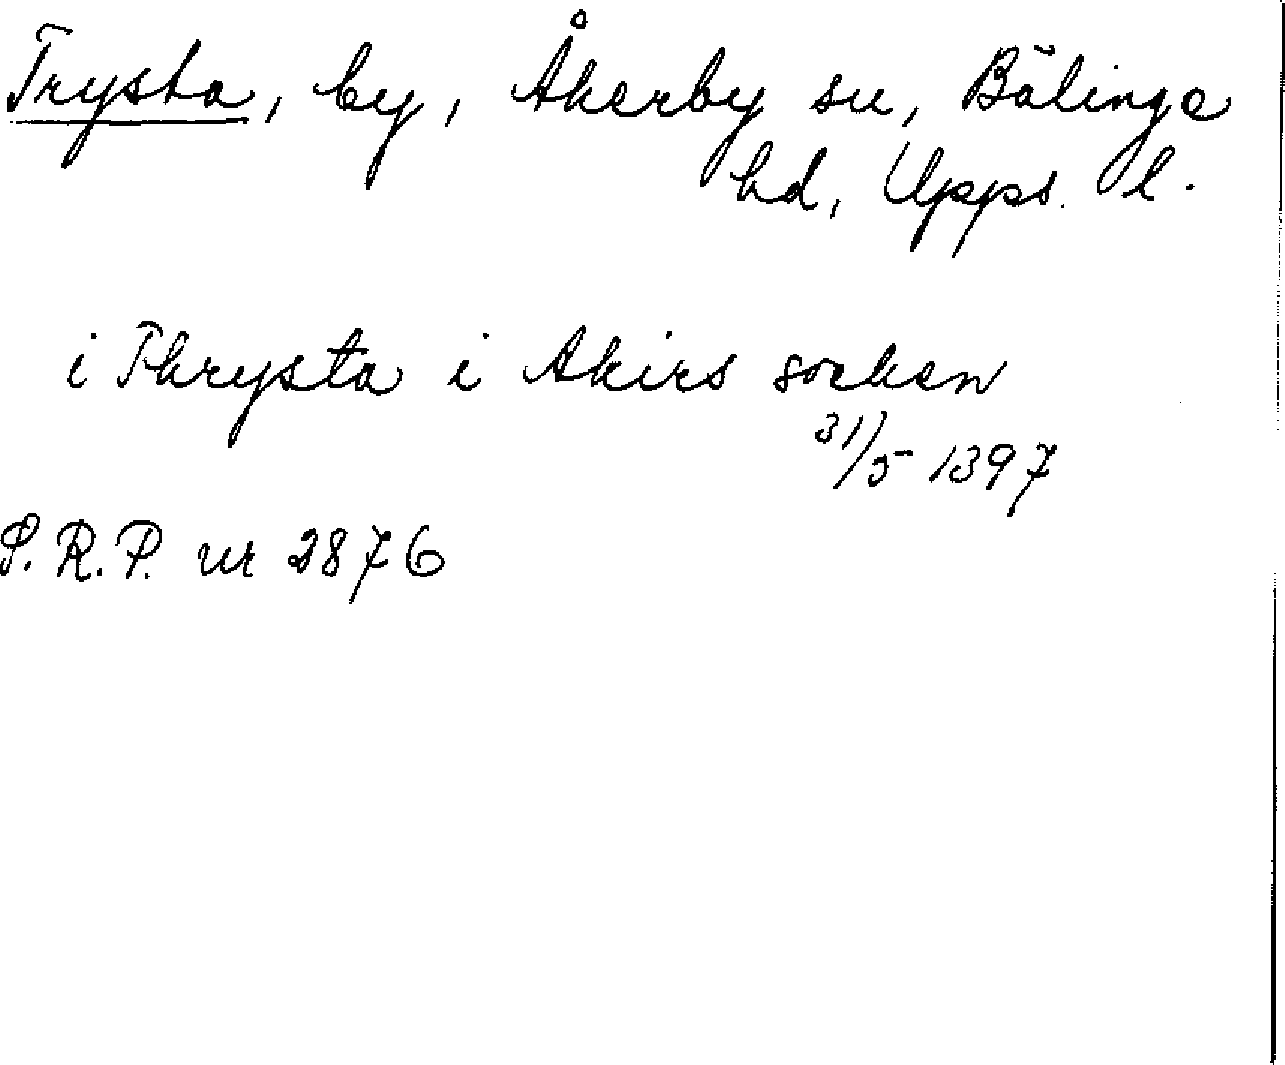 Trysta, by, Åkerby sn, Bälinge
hd, Upps. l.
i Thrysta i Akirs socken
31/5 1397
S.R.P. nr 2876